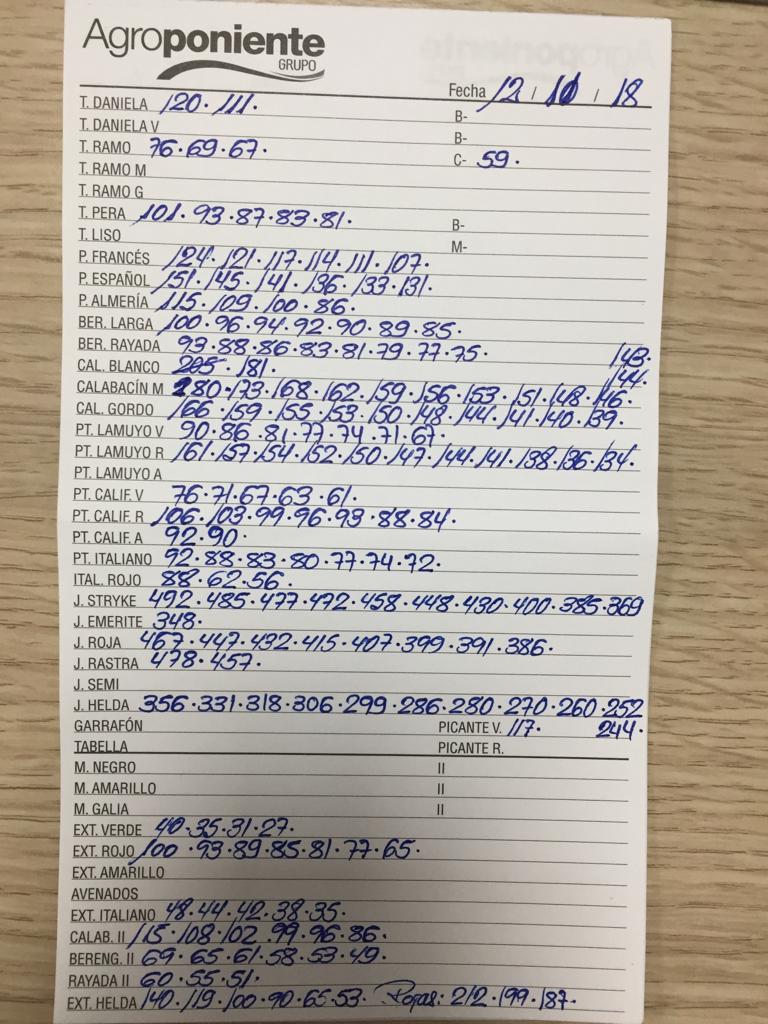 Agroponiente
GRUPO
Fecha 12 / 10 / 18
T. DANELA 120. 111. B-
T. DANIELA V B-
T. RAMO 76.69.67. C- 59.
T. RAMO M
T. RAMO G
T. PERA 101. 93.87.83.81. B-
T. LISO M-
P. FRANCÉS 124. 121. 117. 114. 111. 107.
P. ESPAÑOL 151. 145. 141. 136. 133. 131.
P. ALMERÍA 115. 109. 100. 86.
BER. LARGA 100. 96. 94. 92. 90. 89. 85.
BER. RAYADA 93.88.86.83.81.79.77.75. 143.
CAL. BLANCO 205. 181. 144.
CALABACÍN M 180.173.168.162.159.156.153.151.148.146.
CAL. GORDO 166.159.155.153.150.148.144.141.140.139.
PT. LAMUYO V 90.86.81.77.74.71.67.
PT. LAMUYO R 161.157.154.152.150.147.144.141.138.136.134.
PT. LAMUYO A
PT. CALIF. V 76.71.67.63.61.
PT. CALIF. R 106.103.99.96.93.88.84.
PT. CALIF. A 92.90.
PT. ITALIANO 92.88.83.80.77.74.72.
ITAL. ROJO 88.62.56.
J. STRYKE 492.485.477.472.458.448.430.400.385.369
J. EMERITE 348.
J. ROJA 467.447.432.415.407.399.391.386.
J. RASTRA 478.457.
J. SEMI
J. HELDA 356.331.318.306.299.286.280.270.260.252
GARRAFÓN PICANTE V. 117. 244.
TABELLA PICANTE R.
M. NEGRO II
M. AMARILLO II
M. GALIA II
EXT. VERDE 40.35.31.27.
EXT. ROJO 100.93.89.85.81.77.65.
EXT. AMARILLO
AVENADOS
EXT. ITALIANO 48.44.42.38.35.
CALAB. II 115.108.102.99.96.86.
BERENG. II 69.65.61.58.53.49.
RAYADA II 60.55.51.
EXT. HELDA 140.119.100.90.65.53. Rojas: 212.199.187.